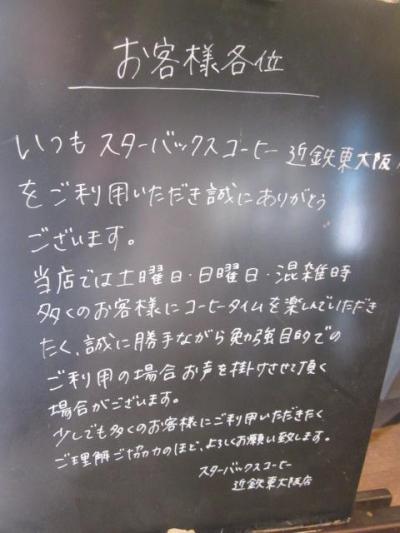 お客様各位
いつもスターバックスコーヒー近鉄東大阪
をご利用いただき誠にありがとう
ございます。
当店では土曜日・日曜日・混雑時
多くのお客様にコーヒータイムを楽しんでいただき
たく、誠に勝手ながら勉強目的での
ご利用の場合お声を掛けさせて頂く
場合がございます。
少しでも多くのお客様にご利用いただきたく
ご理解ご協力のほど、よろしくお願い致します。
スターバックスコーヒー
近鉄東大阪店